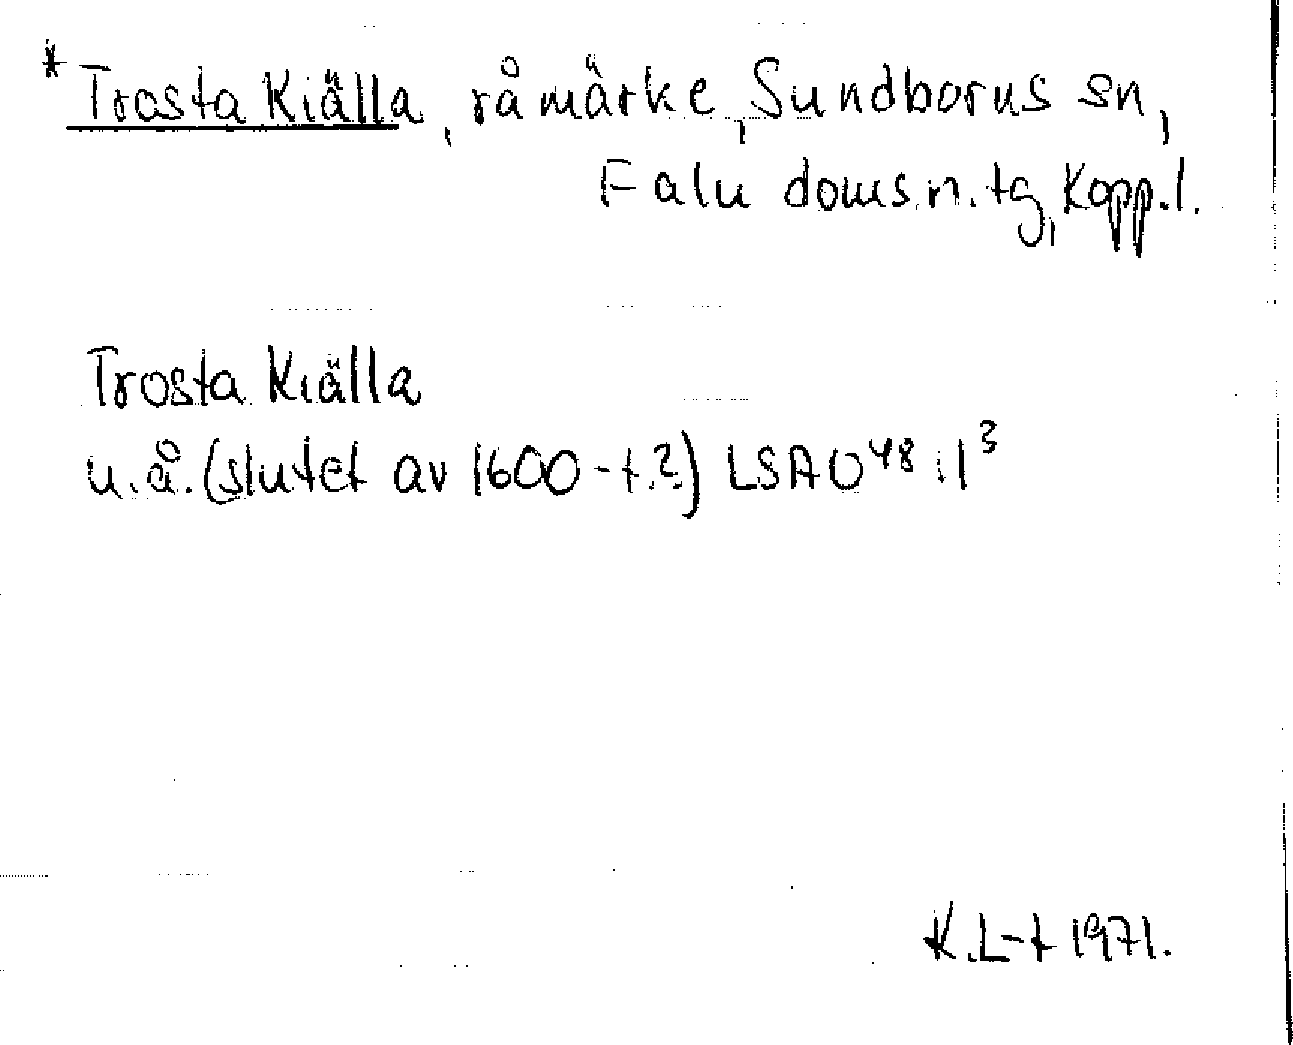 * Trosta Kiälla, råmärke, Sundborns sn,
Falu doms.n.tg, Kopp.l.
Trosta Kiälla
u.å. (slutet av 1600-t.?) LSA U⁴⁸:1³
K.L-t 1971.